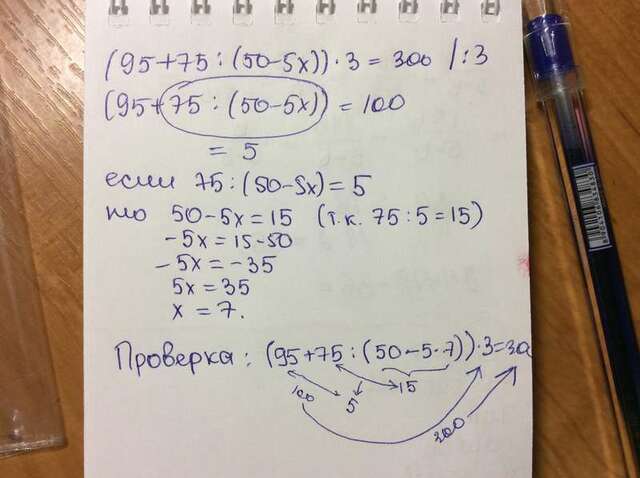 (95+75:(50-5x))·3=300 /:3
(95+75:(50-5x))=100
=5
если 75:(50-5x)=5
то 50-5x=15 (т.к. 75:5=15)
-5x=15-50
-5x=-35
5x=35
x=7.
Проверка: (95+75:(50-5·7))·3=300
100 5 15
300